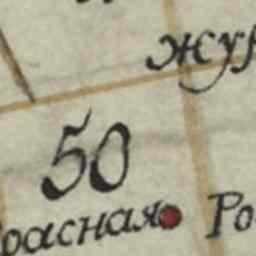 жур
50
расная Ро